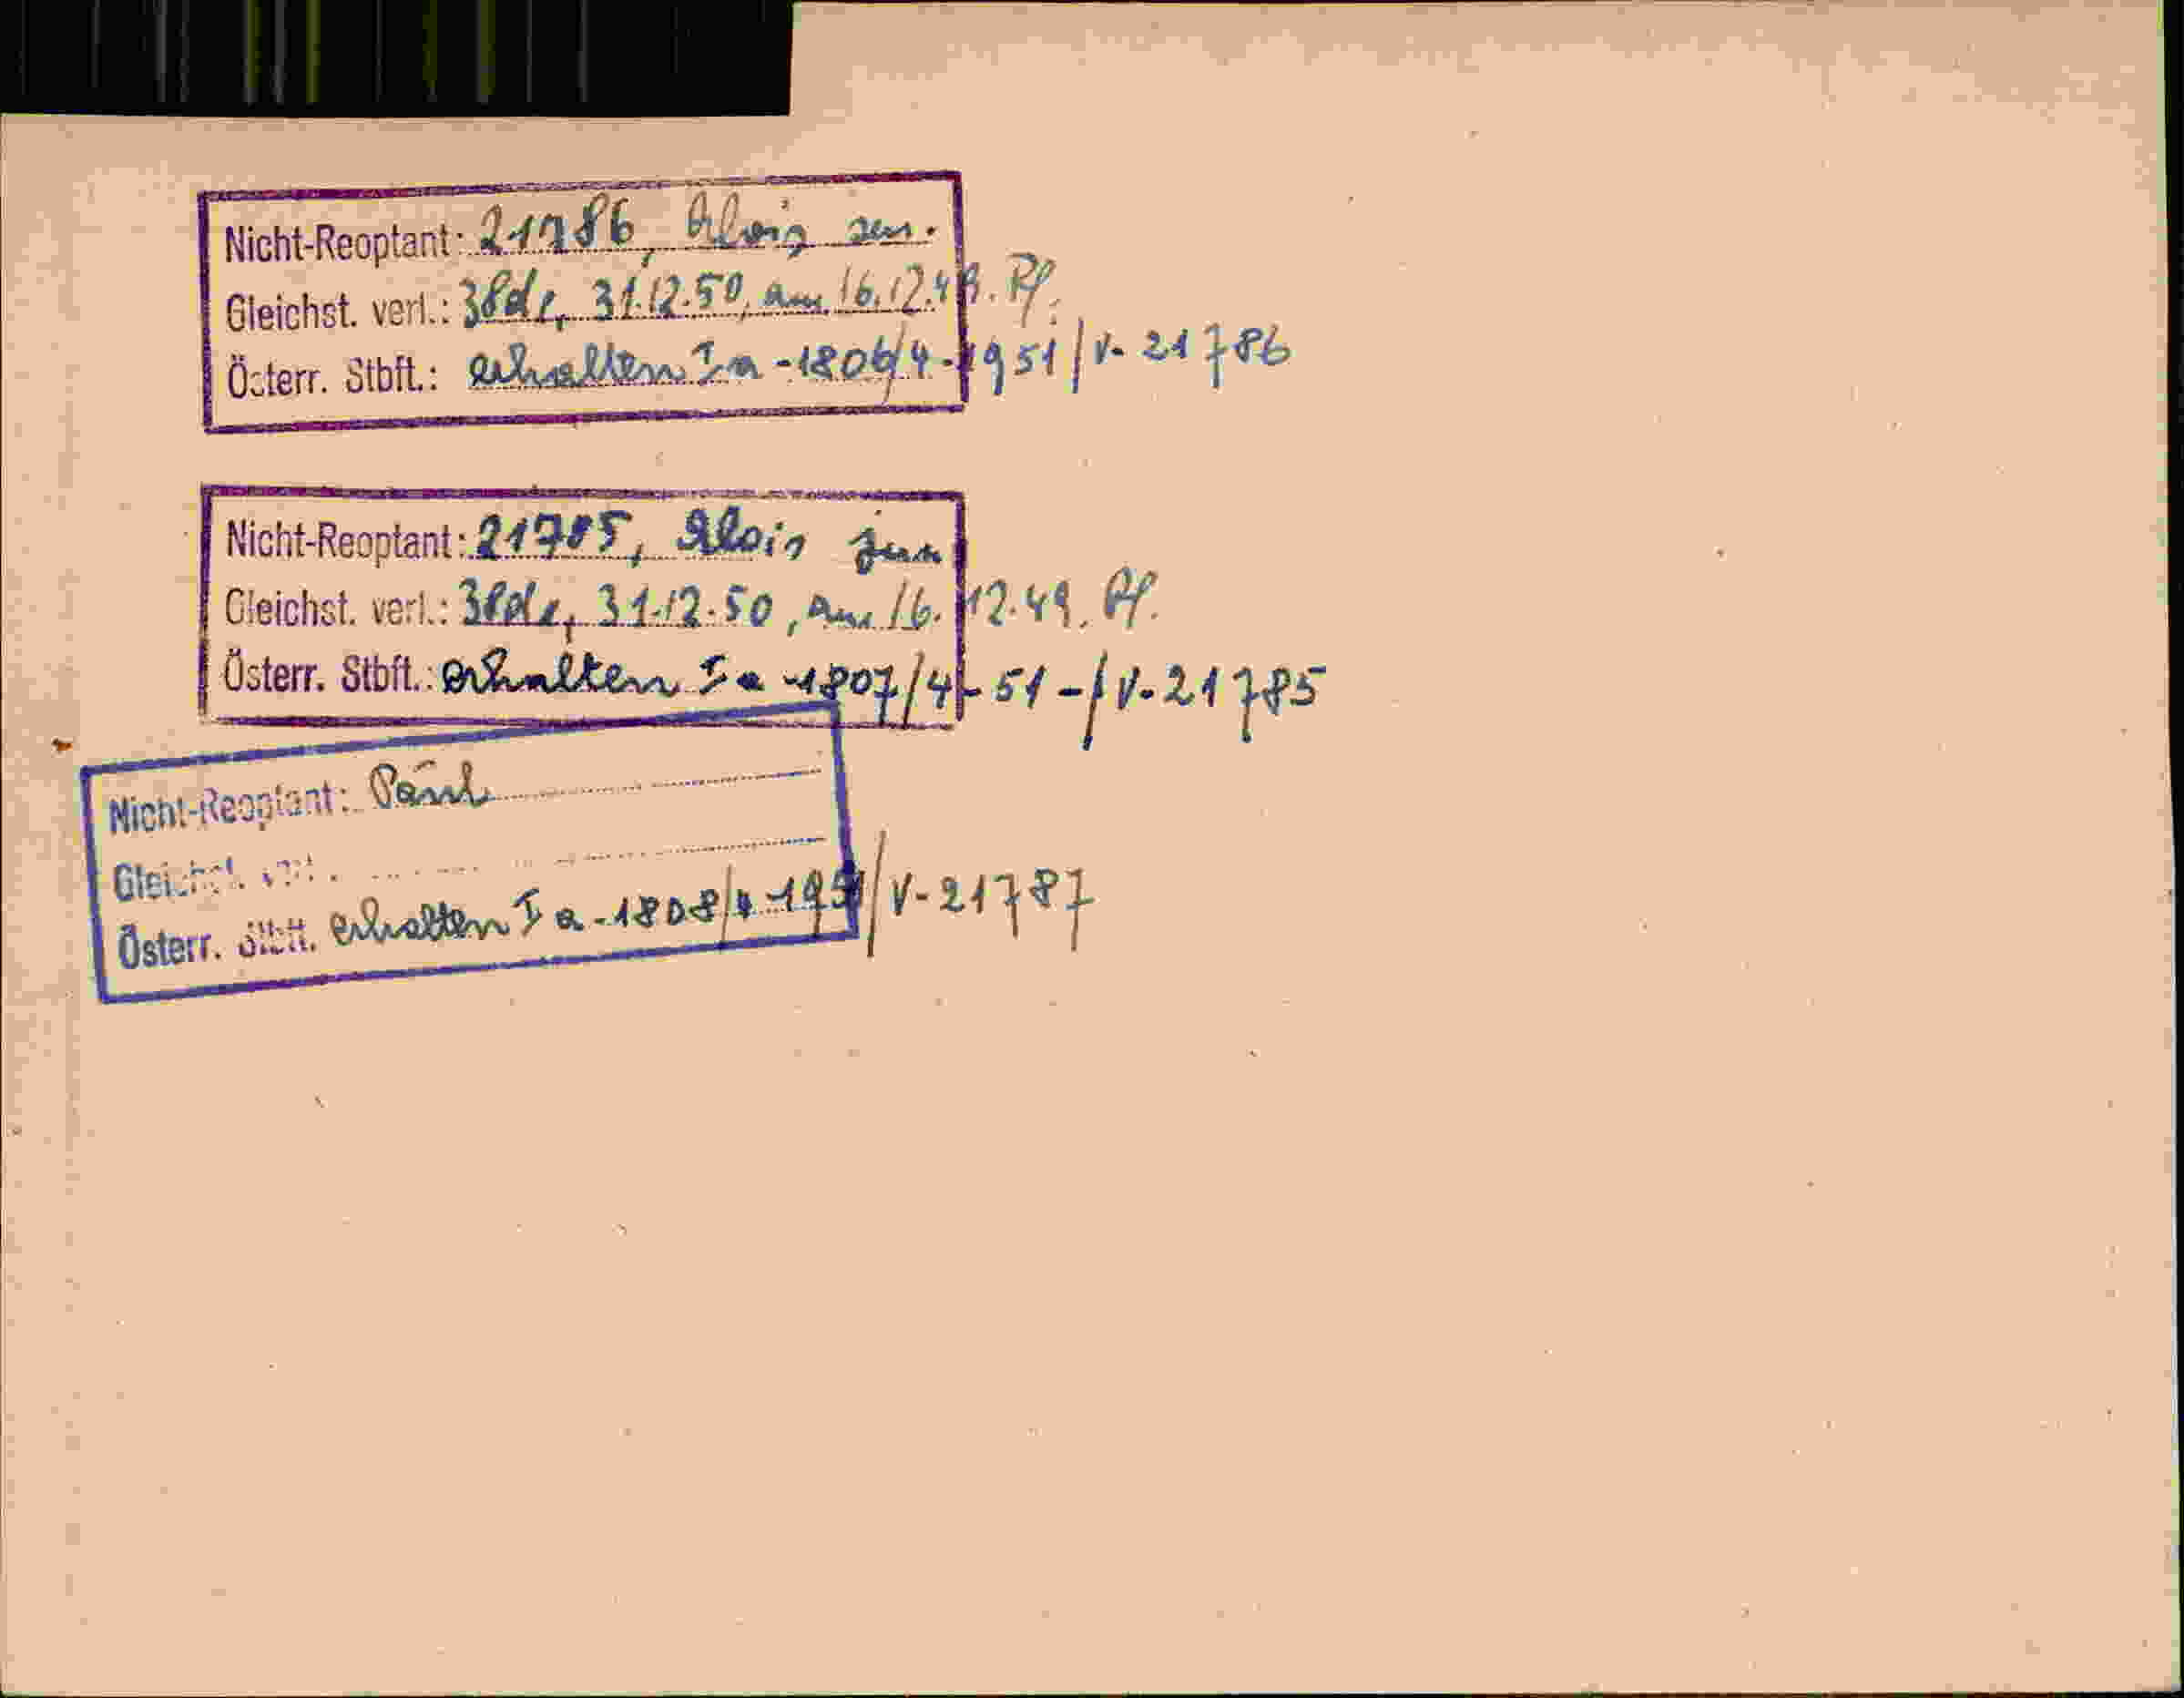 Nicht-Reoptant: 21786, Alois sen.
Gleichst. verl.: 31.12.50, am 16.12.49. Pf.
Österr. Stbft.: erhalten Ia-1806/4-1951/V-21786
Nicht-Reoptant: 21785, Alois jun
Gleichst. verl.: 31.12.50, am 16.12.49. Pf.
Österr. Stbft.: erhalten Ia-1807/4-51-/V-21785
Nicht-Reoptant: Paul
Gleichst. verl.
Österr. Stbft. erhalten Ia-1808/4-1951/V-21787